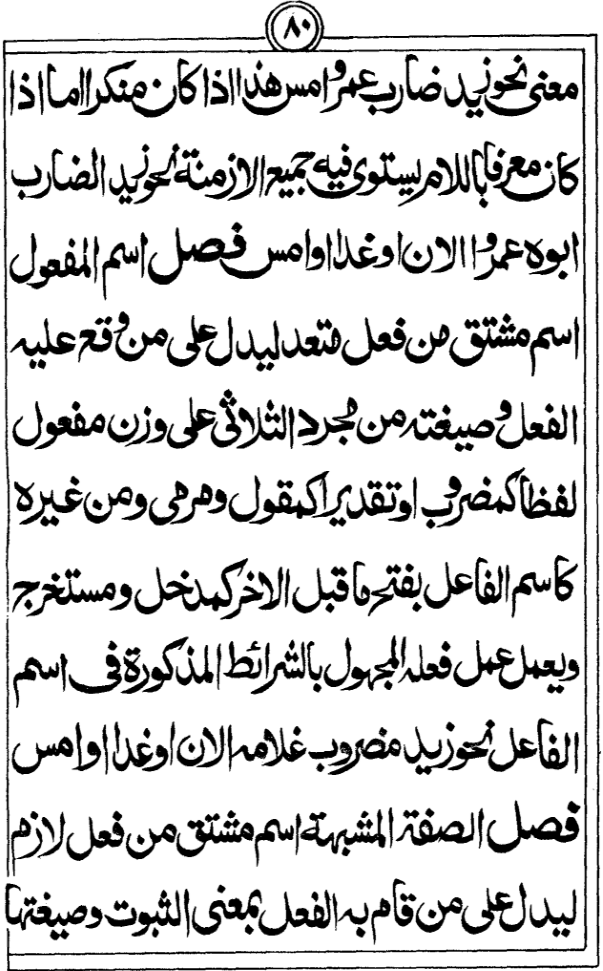 ٨٠
معنى نحو زيد ضارب عمرو امس هذا اذا كان منكرا اما اذا
كان معرفا باللام يستوى فيه جميع الازمنة نحو زيد الضارب
ابوه عمروا الان او غدا او امس فصل اسم المفعول
اسم مشتق من فعل متعد ليدل على من وقع عليه
الفعل وصيغته من مجرد الثلاثى على وزن مفعول
لفظا كمضروب او تقديرا كمقول ومرمى ومن غيره
كاسم الفاعل بفتح ما قبل الاخر كمدخل ومستخرج
ويعمل عمل فعله المجهول بالشرائط المذكورة فى اسم
الفاعل نحو زيد مضروب غلامه الان او غدا او امس
فصل الصفة المشبهة اسم مشتق من فعل لازم
ليدل على من قام به الفعل بمعنى الثبوت وصيغتها